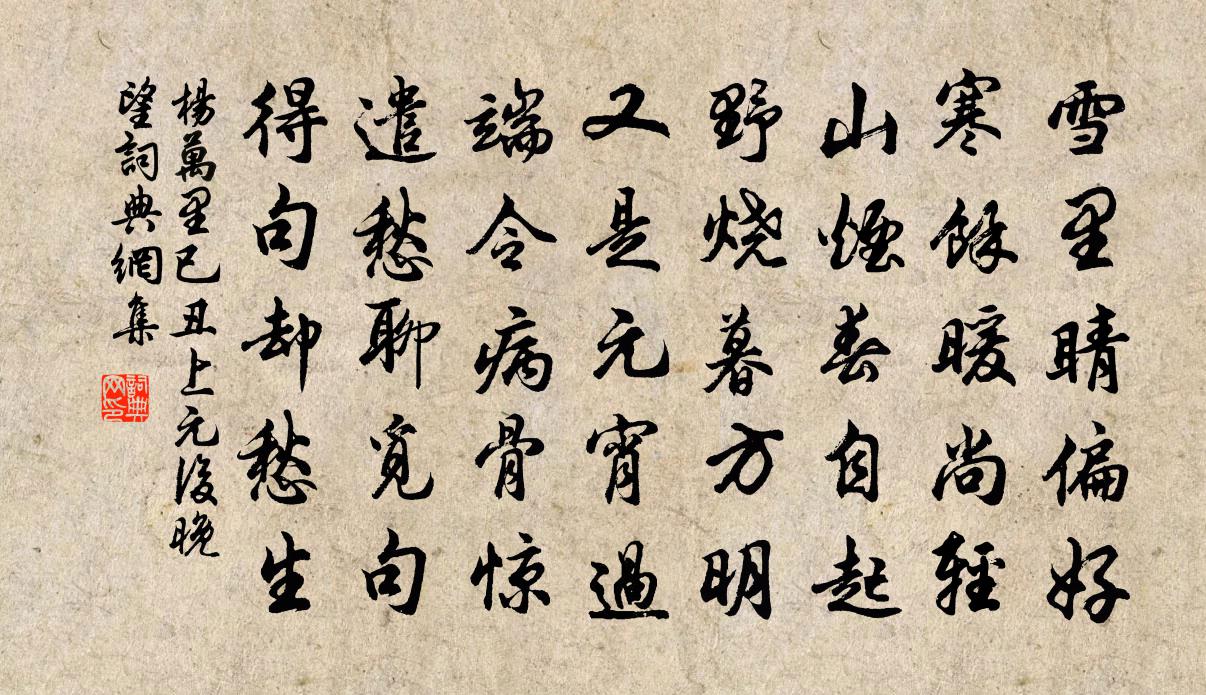 雪里晴偏好
寒馀暖尚轻
山烟春自起
野烧暮方明
又是元宵過
端令病骨惊
遣愁聊觅句
得句却愁生
楊萬里己丑上元後晚
望詞典網集
詞典
网印